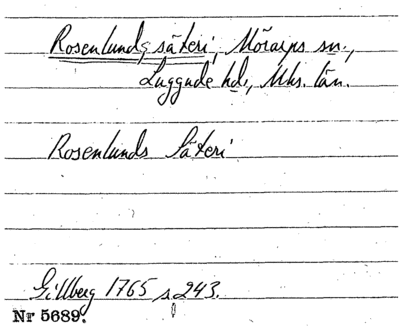 Rosenlunds säteri, Mörarps sn.,
Luggude hd., Mhs. län.
Rosenlunds Säteri
Gillberg 1765 s. 243.
Nr 5689.